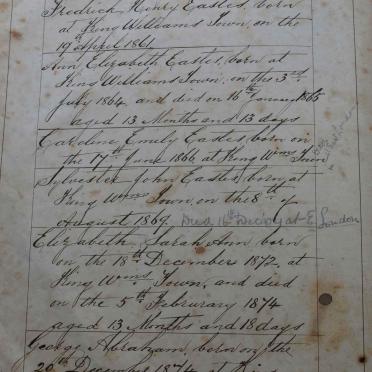 Fredrick Henry Eastes, born
at King Williams Town, on the
19th April 1861
Ann Elizabeth Eastes, born at
King Williams Town, on the 3rd
July 1864 and died on 16th January 1865
aged 13 Months and 13 days
Caroline Emely Eastes, born on
the 17th June 1866 at King Wms Town
Sylvester John Eastes, born at
King Wms Town, on the 8th of
August 1869. Died 16th at E. London
Elizabeth Sarah Ann born
on the 18th Decembers 1872, at
King Wms Town, and died
on the 5th Februrary 1874
aged 13 Months and 18 days
George Abraham, born on the
December 1874 at King